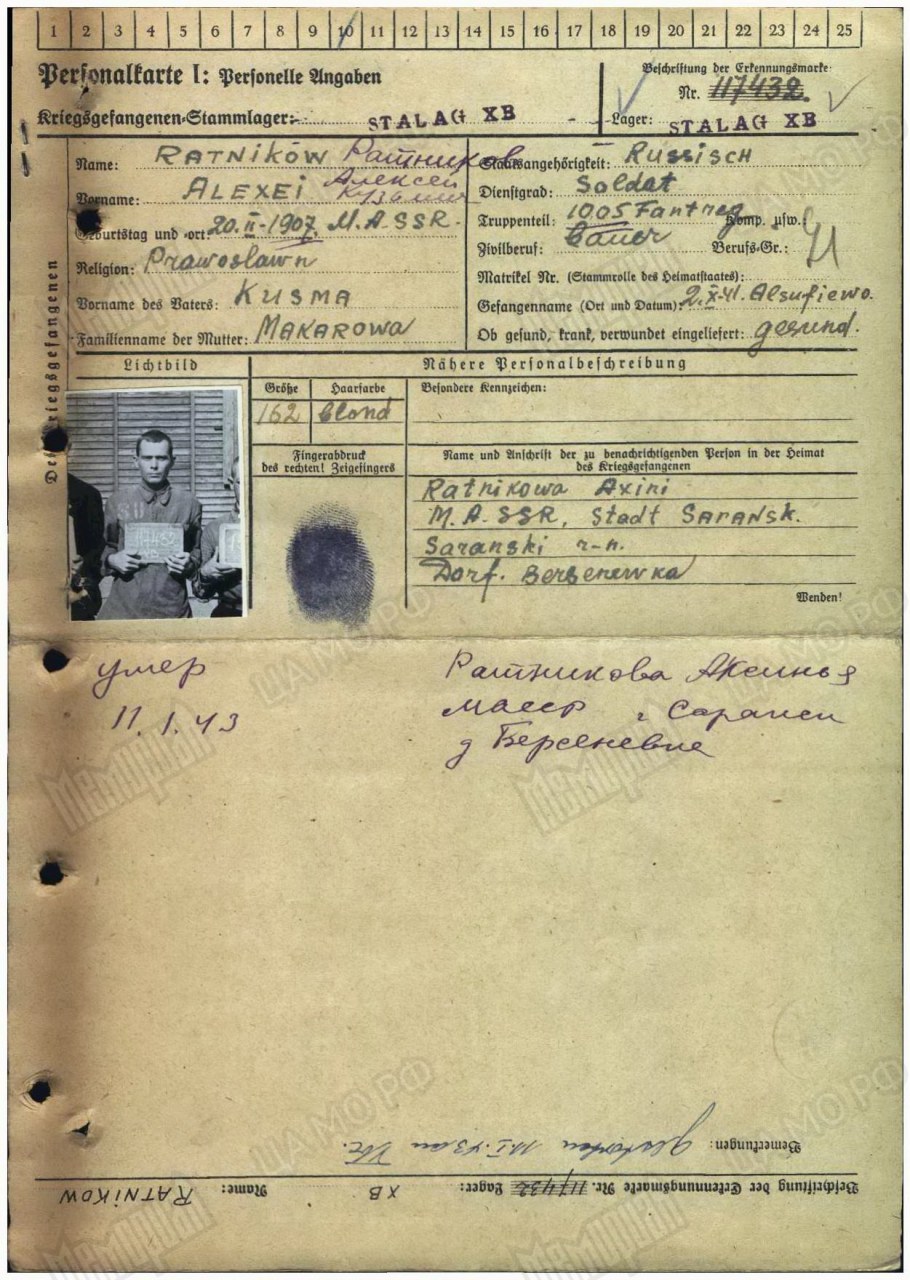 1 2 3 4 5 6 7 8 9 10 11 12 13 14 15 16 17 18 19 20 21 22 23 24 25
Personalkarte I: Personelle Angaben
Kriegsgefangenen-Stammlager: STALAG XB
Beschriftung der Erkennungsmarke
Nr. 117432.
Lager: STALAG XB
Des Kriegsgefangenen
Name: RATNIKOW Ратников
Vorname: ALEXEI Алексей
Geburtstag und -ort: 20.II-1907. M.A.SSR.
Religion: Prawoslawn
Vorname des Vaters: KUSMA
Familienname der Mutter: MAKAROWA
Staatsangehörigkeit: RUSSISCH
Dienstgrad: Soldat
Truppenteil: 1005 Fantreg Komp. usw.
Zivilberuf: Bauer Berufs-Gr.:
Matrikel Nr. (Stammrolle des Heimatstaates):
Gefangenname (Ort und Datum): 2.X.41. Alsufiewo.
Ob gesund, krank, verwundet eingeliefert: gesund.
Lichtbild
Nähere Personalbeschreibung
Größe Haarfarbe
162 blond
Besondere Kennzeichen:
Fingerabdruck
des rechten! Zeigefingers
Name und Anschrift der zu benachrichtigenden Person in der Heimat
des Kriegsgefangenen
Ratnikowa Axini
M.A.SSR, Stadt SARANSK.
Saranski r-n.
Dorf. Bersenewka
Wenden!
умер
11.1.43
Ратникова Аксинья
МАССР г Саранск
д Берсеневке
Bemerkungen: gestorben 11.I.43 an
Beschriftung der Erkennungsmarke Nr. 117432 Lager: XB Name: RATNIKOW
ЦА МО РФ
Мемориал